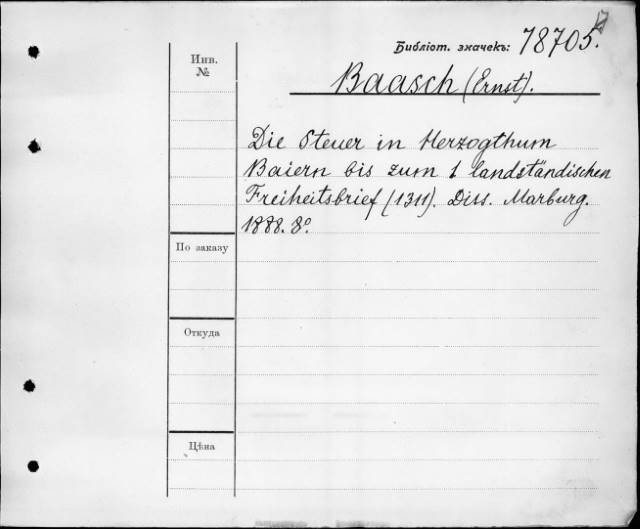 Библіот. значекъ: 78705.
Baasch (Ernst).
Инв.
№
Die Steuer in Herzogthum
Baiern bis zum 1 landständischen
Freiheitsbrief (1311). Diss. Marburg.
1888. 8º.
По заказу
Откуда
Цѣна